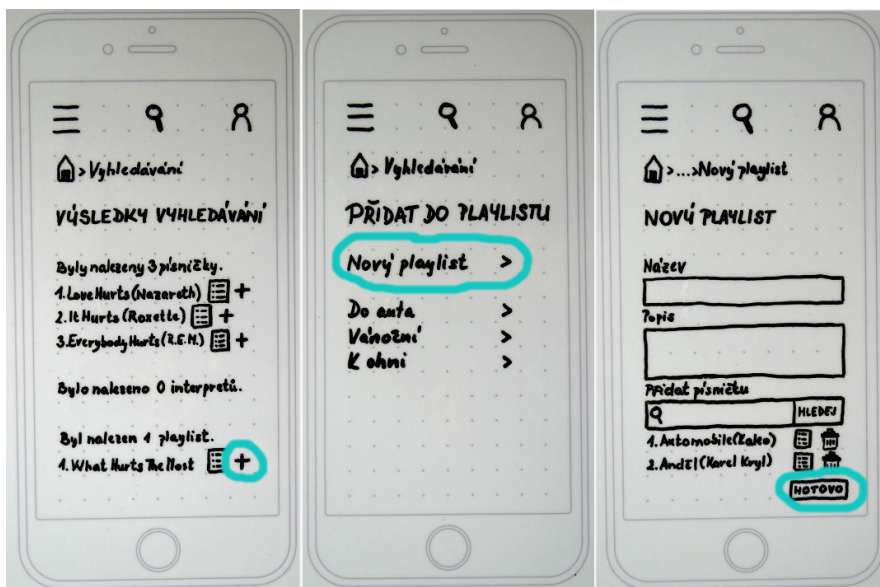 > Vyhledávání
VÝSLEDKY VYHLEDÁVÁNÍ
Byly nalezeny 3 písničky.
1. Love Hurts (Nazareth) +
2. It Hurts (Roxette) +
3. Everybody Hurts (R.E.M.) +
Bylo nalezeno 0 interpretů.
Byl nalezen 1 playlist.
1. What Hurts The Most +
> Vyhledávání
PŘIDAT DO PLAYLISTU
Nový playlist >
Do auta >
Vánoční >
K ohni >
> ... > Nový playlist
NOVÝ PLAYLIST
Název
Popis
Přidat písničku
HLEDEJ
1. Automobile (Kaleo)
2. Anděl (Karel Kryl)
HOTOVO